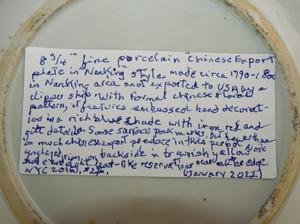 8 3/4" fine porcelain "Chinese Export"
plate in Nanking style, made circa 1790-1800
in Nanking area and exported to USA by a
clipper ship. With formal Chinese floral
pattern, it features embossed hand decorat-
ion in a rich blue shade with iron red and
gilt details. Some surface pock marks, but
on much chinese export produce in this period. Note
unglazed rim, on backside in brownish yellow
NYC 2010, (January 2022)